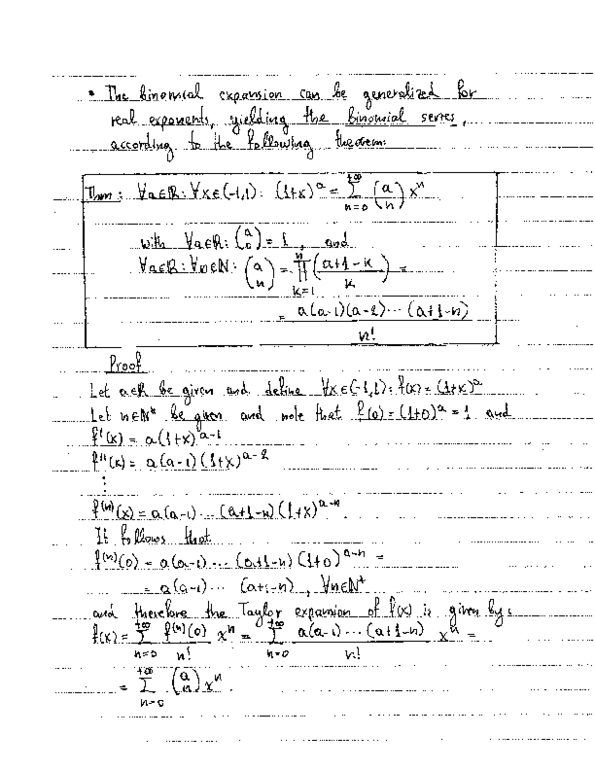 • The binomial expansion can be generalized for
real exponents, yielding the binomial series,
according to the following theorem:
Thm: ∀a∈ℝ: ∀x∈(-1,1): (1+x)^a = ∑_{n=0}^{+∞} (a choose n) x^n
with ∀a∈ℝ: (a choose 0) = 1, and
∀a∈ℝ: ∀n∈ℕ: (a choose n) = ∏_{k=1}^{n} ((a+1-k)/k) =
= a(a-1)(a-2)⋯(a+1-n)/n!
Proof
Let a∈ℝ be given and define ∀x∈(-1,1): f(x) = (1+x)^a
Let n∈ℕ* be given and note that f(0) = (1+0)^a = 1 and
f'(x) = a(1+x)^{a-1}
f''(x) = a(a-1)(1+x)^{a-2}
⋮
f^{(n)}(x) = a(a-1)⋯(a+1-n)(1+x)^{a-n}
It follows that
f^{(n)}(0) = a(a-1)⋯(a+1-n)(1+0)^{a-n} =
= a(a-1)⋯(a+1-n), ∀n∈ℕ*
and therefore the Taylor expansion of f(x) is given by:
f(x) = ∑_{n=0}^{+∞} f^{(n)}(0)/n! x^n = ∑_{n=0}^{+∞} a(a-1)⋯(a+1-n)/n! x^n =
= ∑_{n=0}^{+∞} (a choose n) x^n.